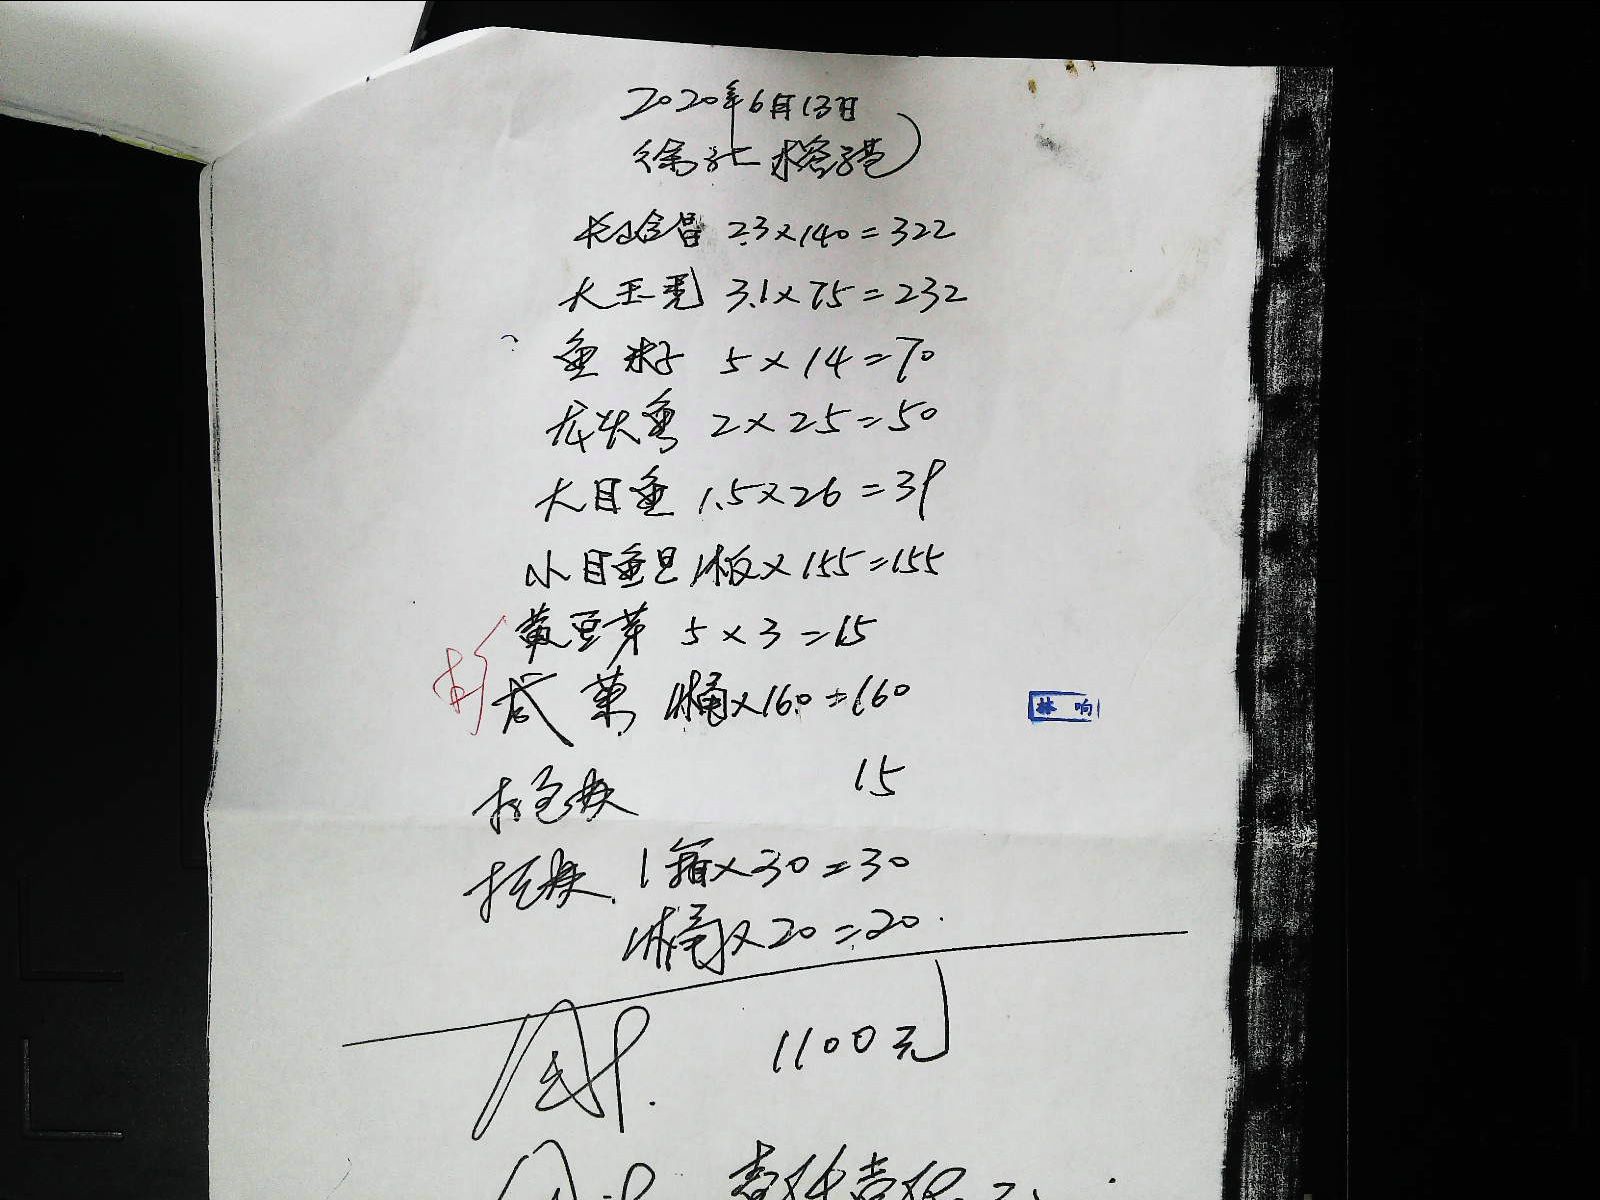 2020年6月13日
徐记
2.3×140=322
大玉秃 3.1×75=232
鱼籽 5×14=70
龙头鱼 2×25=50
大目鱼 1.5×26=39
小目鱼旦 1板×155=155
黄豆芽 5×3=15
咸菜 1桶×160=160
林 响
15
1箱×30=30
1桶×20=20
1100元